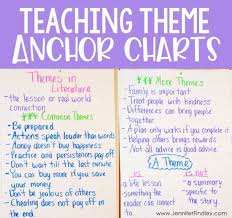 TEACHING THEME
ANCHOR CHARTS
Themes in
Literature
- the lesson or real world
connection
*** Common Themes
- Be prepared
- Actions speak louder than words
- Money doesn't buy happiness
- Practice and persistence pays off
- Don't wait till the last minute
- You can buy more if you save
your money
- Don't be jealous of others
- Cheating does not pay off in
the end
*** More Themes
- Family is important
- Treat people with kindness
- Differences can bring people
together
- A plan only works if you complete it
- Helping others brings rewards
- Not all advice is good advice
A Theme
is
a life lesson
something the
reader can
connect to
is not
- a summary
- specific
to the story
www.JenniferFindley.com